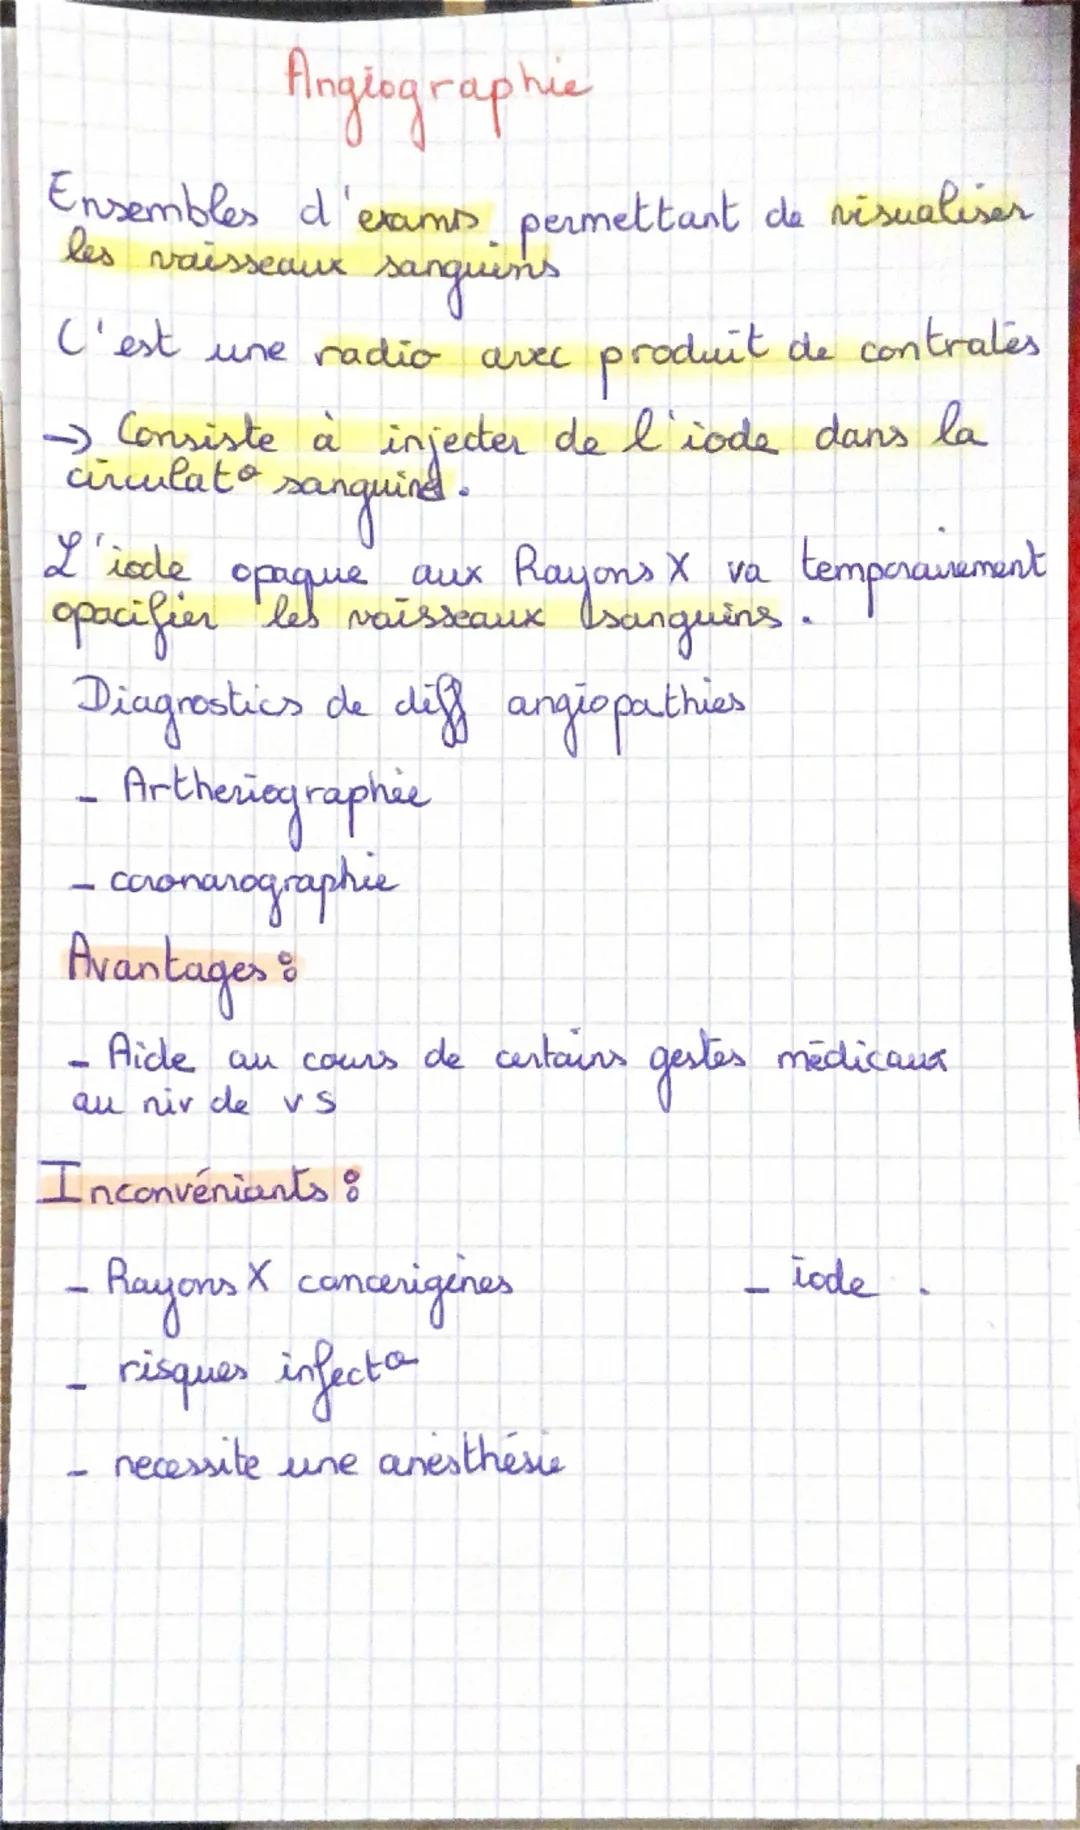 Angiographie
Ensembles d'exams permettant de visualiser
les vaisseaux sanguins
C'est une radio avec produit de contratés
→ Consiste à injecter de l'iode dans la
circulat° sanguine.
L'iode opaque aux Rayons X va temporairement
opacifier les vaisseaux sanguins.
Diagnostics de diff angiopathies
- Artheriographie
- coronarographie
Avantages :
- Aide au cours de certains gestes médicaux
au niv de vs
Inconvéniants :
- Rayons X cancerigènes - iode.
- risques infect°
- necessite une anésthésie